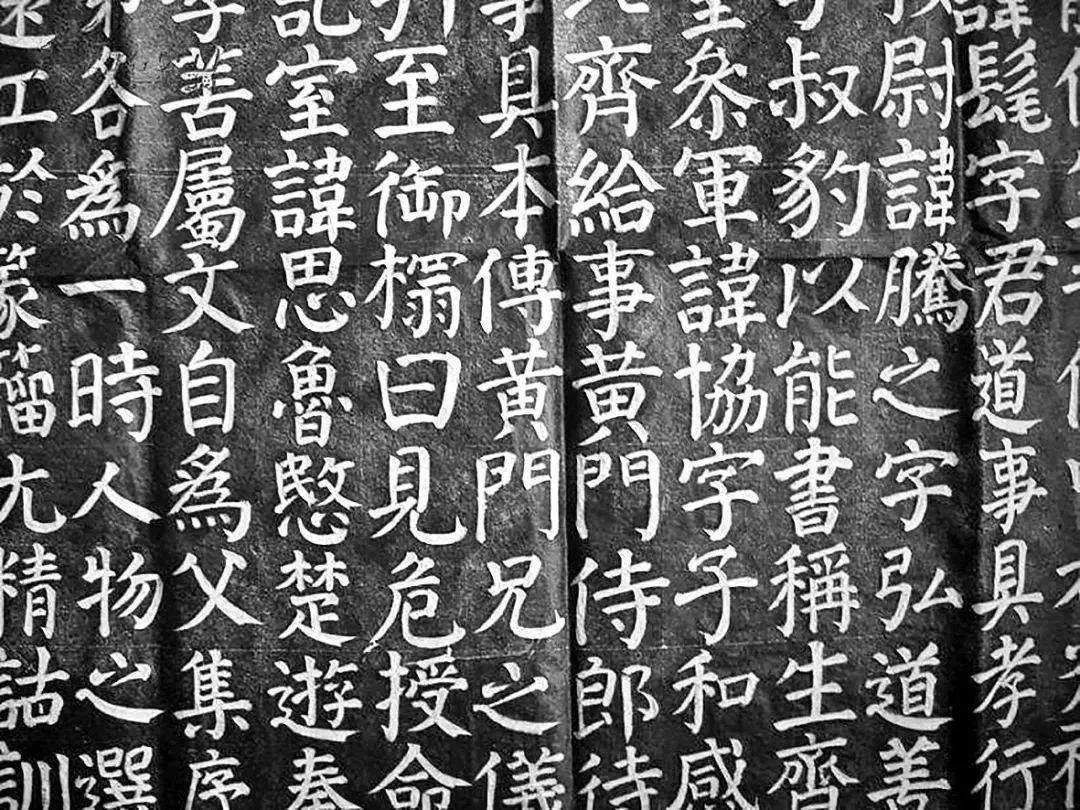 諱髦字君道事具孝行
尉諱騰之字弘道善
叔豹以能書稱生齊
參軍諱協字子和感
齊給事黃門侍郎待
事具本傳黃門兄之儀
引至御榻曰見危授命
記室諱思魯愍楚遊秦
字善屬文自爲父集序
各爲一時人物之選
工於篆籀尤精詁訓